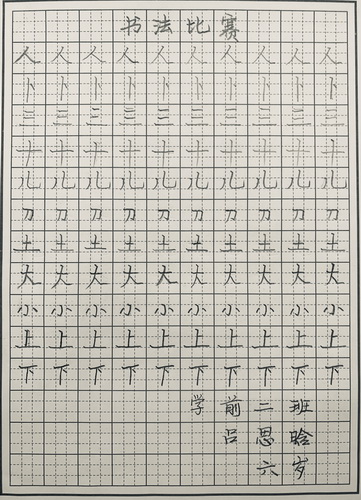 书法比赛
人人人人人人人人人人
卜卜卜卜卜卜卜卜卜卜
三三三三三三三三三三
十十十十十十十十十十
儿儿儿儿儿儿儿儿儿儿
刀刀刀刀刀刀刀刀刀刀
土土土土土土土土土土
大大大大大大大大大大
小小小小小小小小小小
上上上上上上上上上上
下下下下下下下下下下
学前二班
吕思晗
六岁